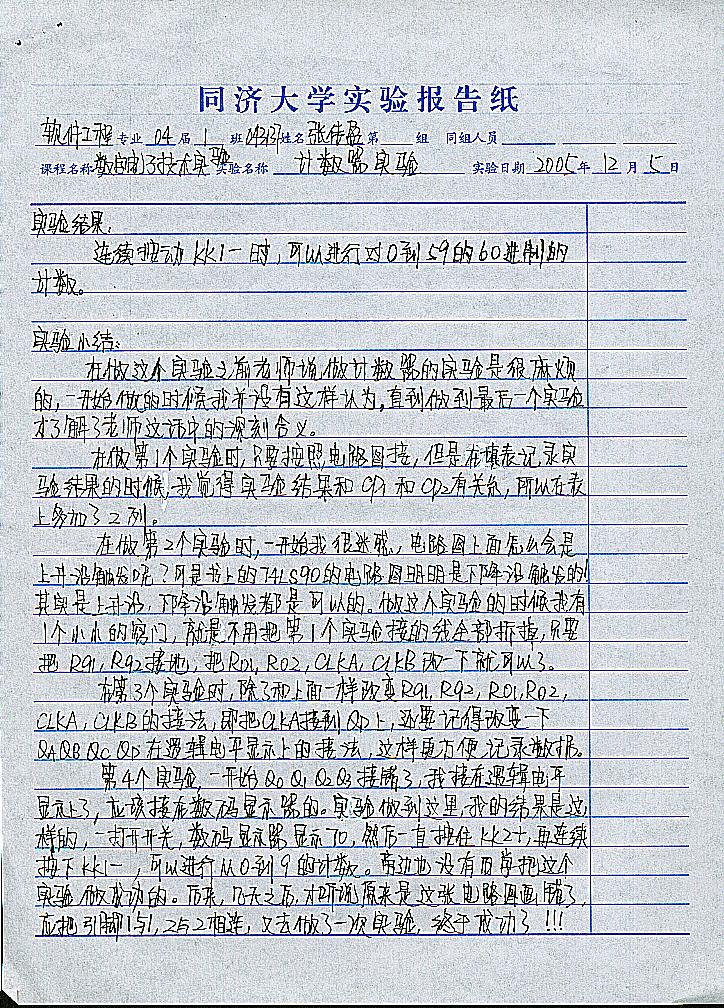 同济大学实验报告纸
软件工程 专业 04 届 1 班 姓名 张 第 组 同组人员
课程名称 数字电子技术实验 实验名称 计数器实验 实验日期 2005年 12 月 5 日
实验结果:
连续按动KK1一时,可以进行对0到59的60进制的
计数。
实验小结:
在做这个实验之前老师说做计数器的实验是很麻烦
的,一开始做的时候我并没有这样认为,直到做到最后一个实验
才了解了老师这话中的深刻含义。
在做第1个实验时,只要按照电路图接,但是在填表记录实
验结果的时候,我觉得实验结果和CP1和CP2有关系,所以在表
上多加了2列。
在做第2个实验时,一开始我很迷惑,电路图上面怎么会是
上升沿触发呢?可是书上的74LS90的电路图明明是下降沿触发的!
其实是上升沿,下降沿触发都是可以的。做这个实验的时候我有
1个小小的窍门,就是不用把第1个实验接的线全部拆掉,只要
把R91,R92接地,把R01,R02,CLKA,CLKB改一下就可以了。
在第3个实验时,除了和上面一样改变R91,R92,R01,R02,
CLKA,CLKB的接法,即把CLKA接到QD上,还要记得改变一下
QAQBQCQD在逻辑电平显示上的接法,这样更方便记录数据。
第4个实验,一开始Q0Q1Q2Q3接错了,我接在逻辑电平
显示上了,应该接在数码显示器的。实验做到这里,我的结果是这
样的,一打开开关,数码显示器显示70,然后一直按住KK2+,再连续
按下KK1一,可以进行从0到9的计数。旁边也没有同学把这个
实验做成功的。后来,几天之后,才听说原来是这张电路图画错了,
应把引脚1与1,2与2相连,又去做了一次实验,终于成功了!!!